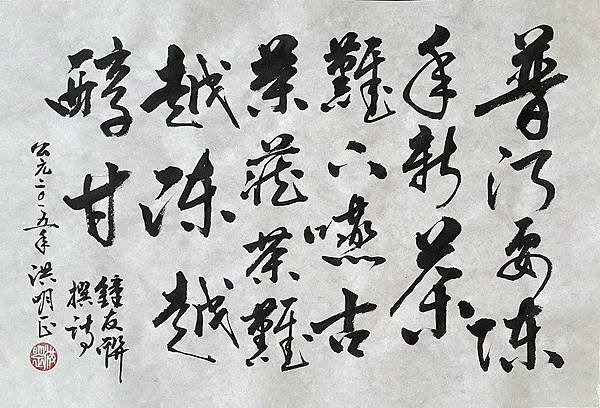 普洱要陈
年新茶
難下嚥古
茶藏茶難
越陈越
醇甘
鐘友聯
撰詩
公元二〇一五年洪明正